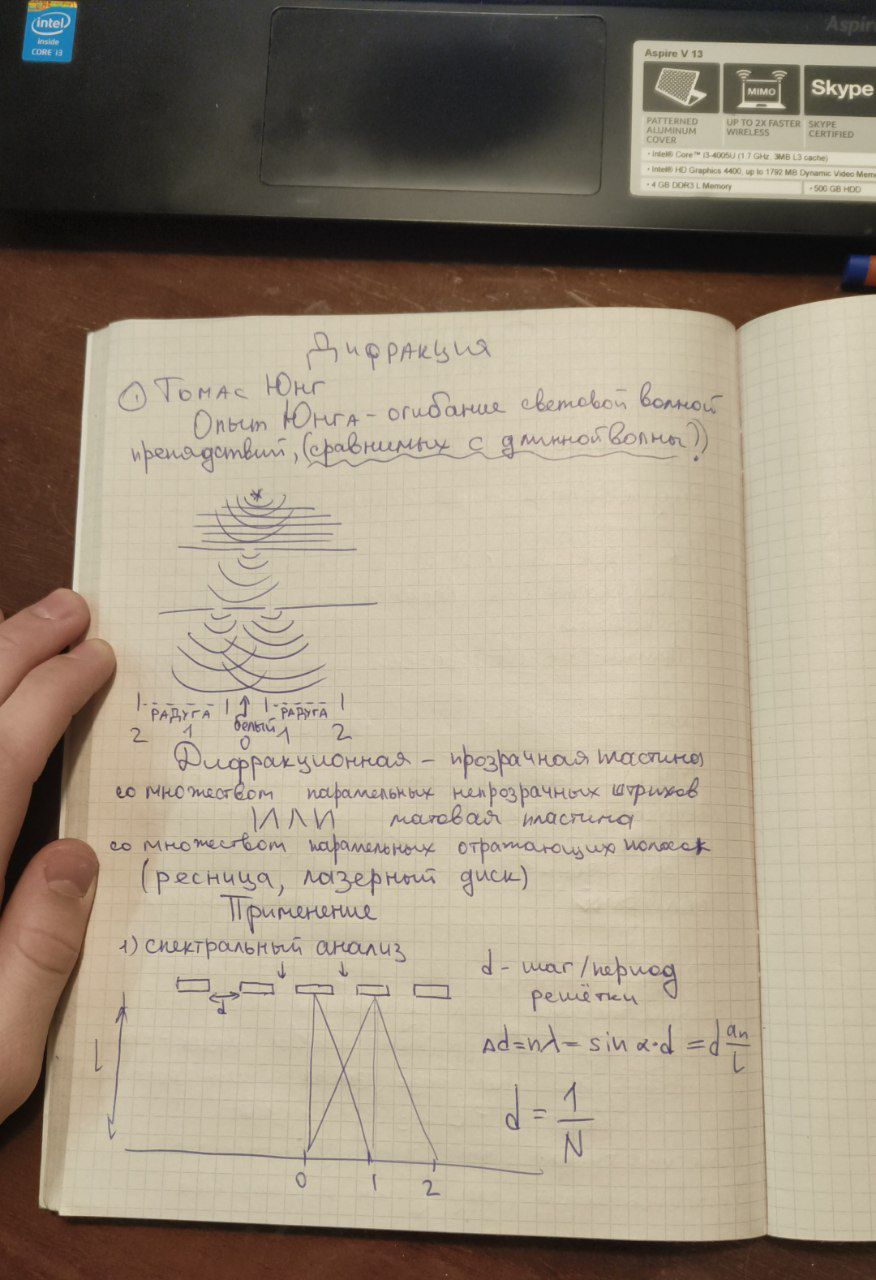 intel
inside
CORE i3
Aspire
Aspire V 13
MIMO
Skype
PATTERNED ALUMINUM COVER
UP TO 2X FASTER WIRELESS
SKYPE CERTIFIED
• Intel® Core™ i3-4005U (1.7 GHz, 3MB L3 cache)
• Intel® HD Graphics 4400, up to 1792 MB Dynamic Video Mem
• 4 GB DDR3 L Memory
• 500 GB HDD
Дифракция
① Томас Юнг
Опыт Юнга – огибание световой волной
препядствий, (сравнимых с длинной волны?)
РАДУГА
белый
РАДУГА
2 1 0 1 2
Дифракционная – прозрачная пластина
со множеством паралельных непрозрачных штрихов
ИЛИ матовая пластина
со множеством паралельных отражающих полосок
(ресница, лазерный диск)
Применение
1) спектральный анализ
d – шаг/период
решётки
d
l
Δd=nλ= sin α·d = d aₙ/L
d = 1/N
0 1 2